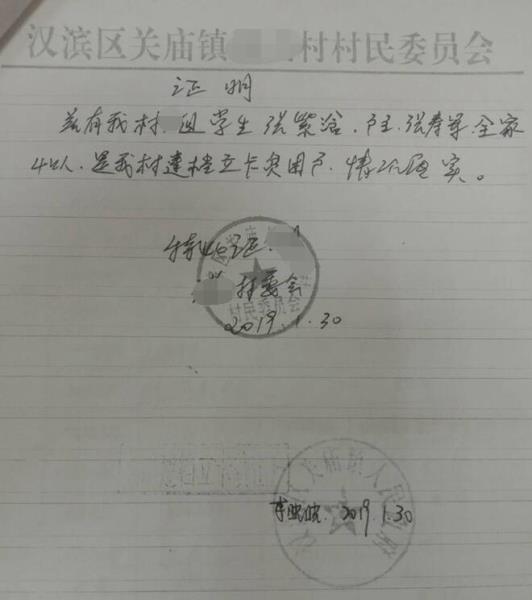 汉滨区关庙镇 村村民委员会
证明
兹有我村 组学生张紫涵、户主、张寿军全家
4口人、是我村建档立卡贫困户、情况属实。
特此证明
村委会
村民委员会
2019.1.30
关庙镇人民政府
2019.1.30